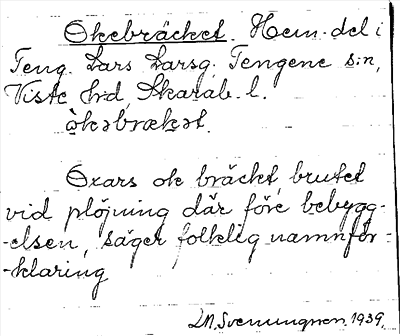 Okebräcket. Hem. del i
Teng. Lars Larsg. Tengene s:n,
Viste hd, Skarab. l.
òkəbrækət.
Oxars ok bräckt, brutet
vid plöjning där före bebygg-
-elsen, säger folklig namnför-
-klaring
1939.